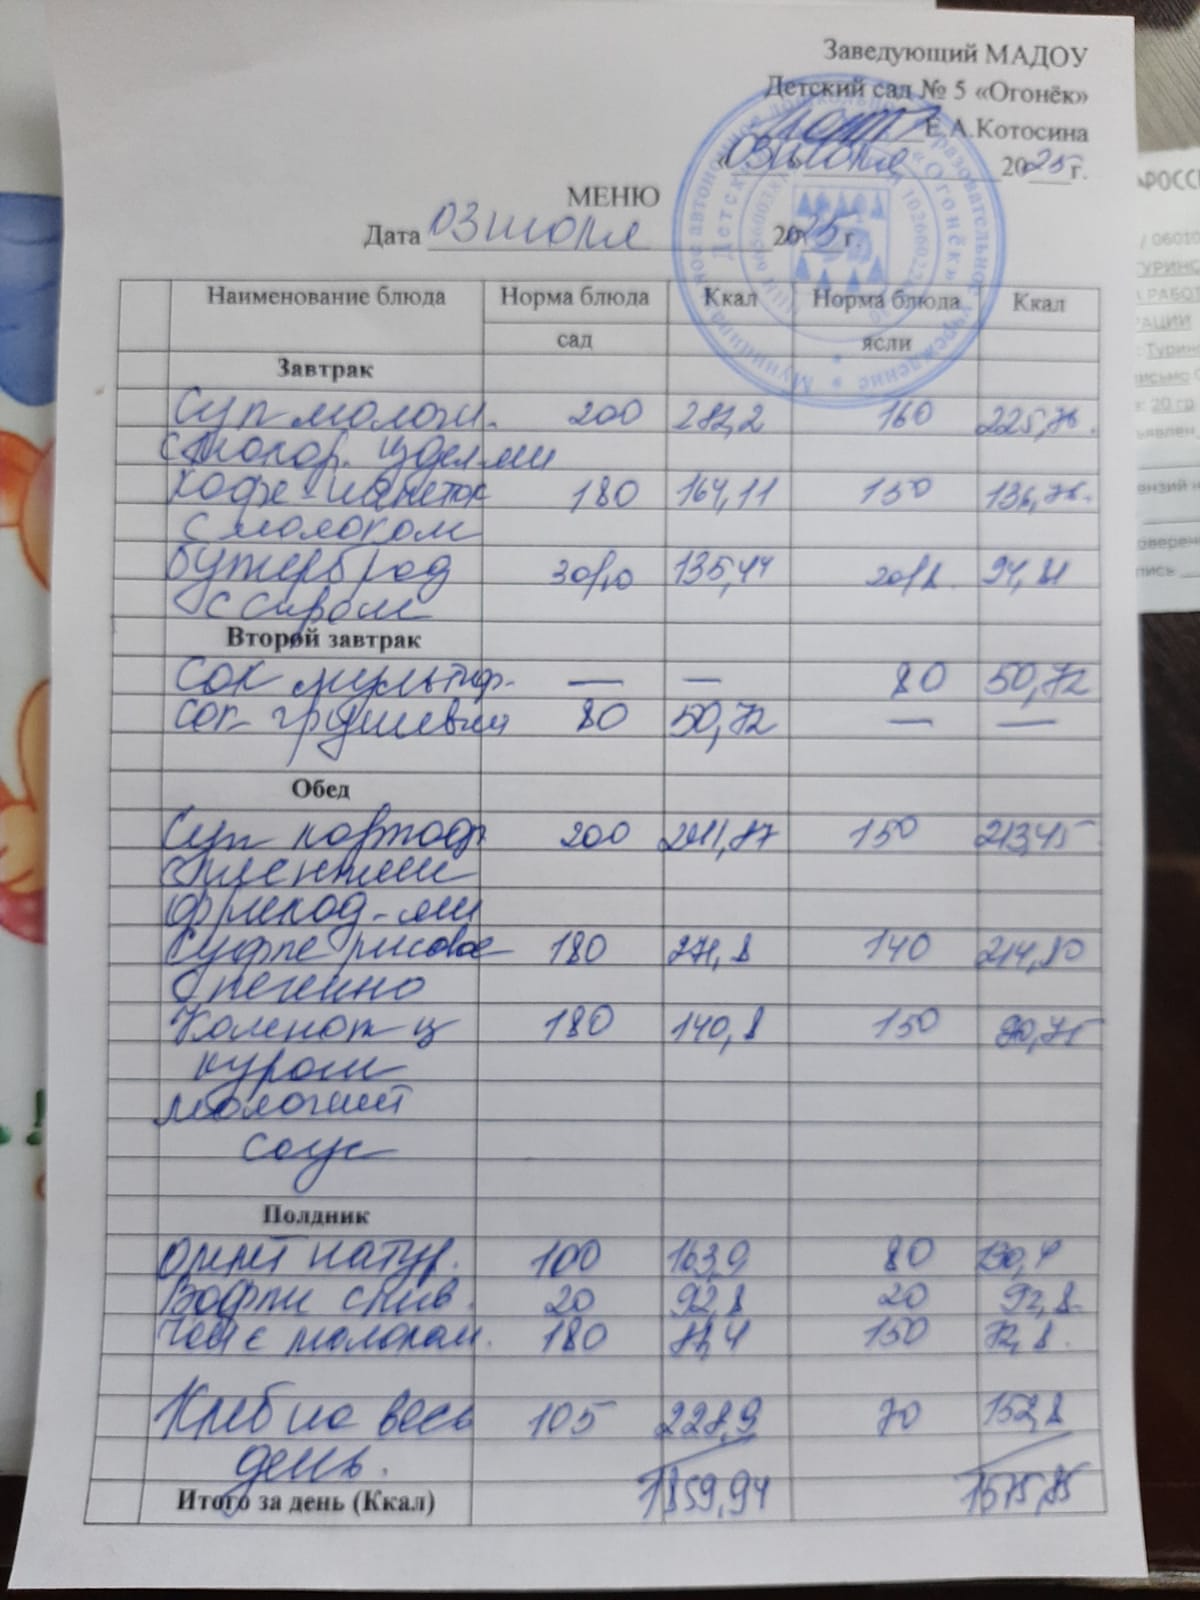 Заведующий МАДОУ
Детский сад № 5 «Огонёк»
Е.А.Котосина
«03» июля 2025 г.
МЕНЮ
Дата 03 июля 2025 г.
Наименование блюда Норма блюда Ккал Норма блюда Ккал
сад ясли
Завтрак
Суп молочн. 200 282,2 160 225,76.
с макар. издел-ми
Кофе-напиток 180 164,11 150 136,76.
с молоком
Бутерброд 30/10 135,44 20/8. 94,81
с сыром
Второй завтрак
Сок мультиф. — — 80 50,72
Сок грушевый 80 50,72 — —
Обед
Суп картоф. 200 150 213,45
фрикад-ми
Суфле рисовое 180 271,8 140
с печенью
Компот из 180 140,8 150
кураги
молочный
соус
Полдник
Омлет натур. 100 163,0 80 130,4
Вафли слив. 20 92,8 20 92,8.
Чай с молоком. 180 150 72,8.
Хлеб на весь 105 228,9 70 152,8
день.
Итого за день (Ккал) 1859,94 1575,85